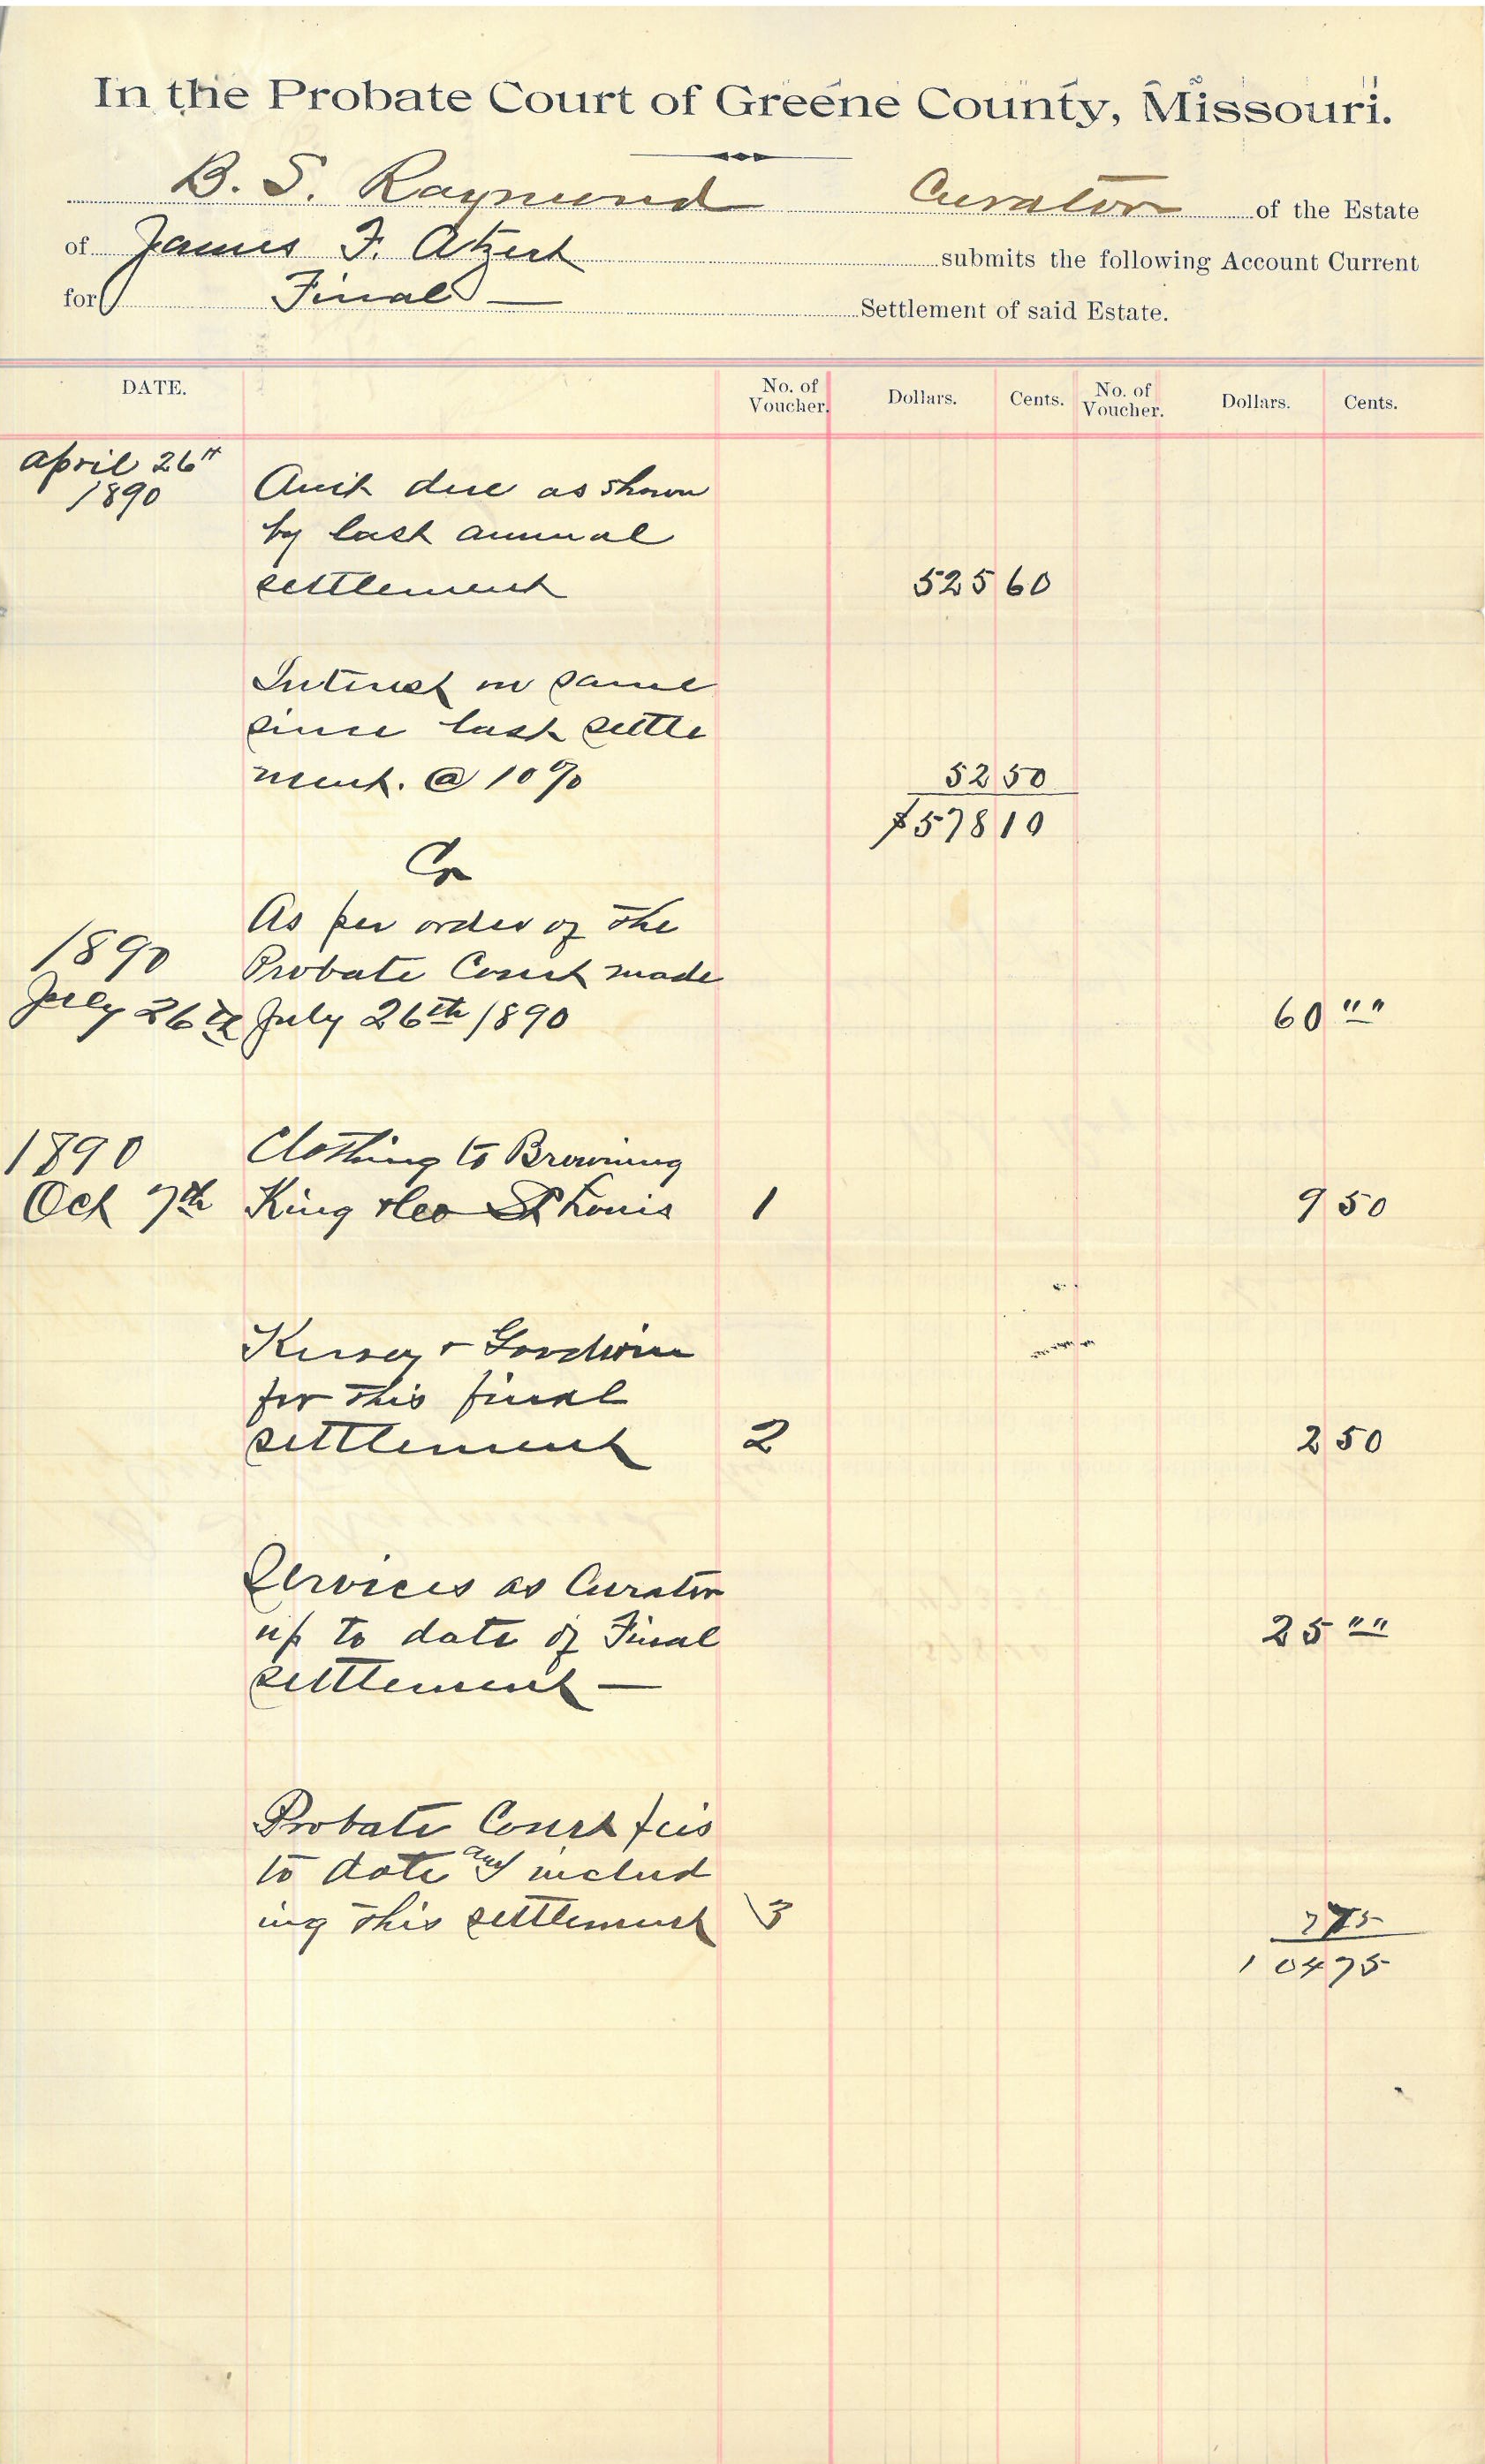 In the Probate Court of Greene County, Missouri.
B. S. Raymond Curator of the Estate
of James F. Atzert submits the following Account Current
for Final — Settlement of said Estate.
DATE. No. of Voucher. Dollars. Cents. No. of Voucher. Dollars. Cents.
April 26"
1890 Amt due as shown
by last annual
settlement 525 60
Interest on same
since last settle
ment. @ 10% 52 50
$578 10
Cr
As per order of the
1890 Probate Court made
July 26th July 26th 1890 60 " "
1890 Clothing to Browning
Oct 7th King & Co St Louis 1 9 50
Kersey & Goodwin
for this final
settlement 2 2 50
Services as Curator
up to date of Final 25 " "
settlement —
Probate Court fees
to date and includ
ing this settlement 3 7 75
104 75